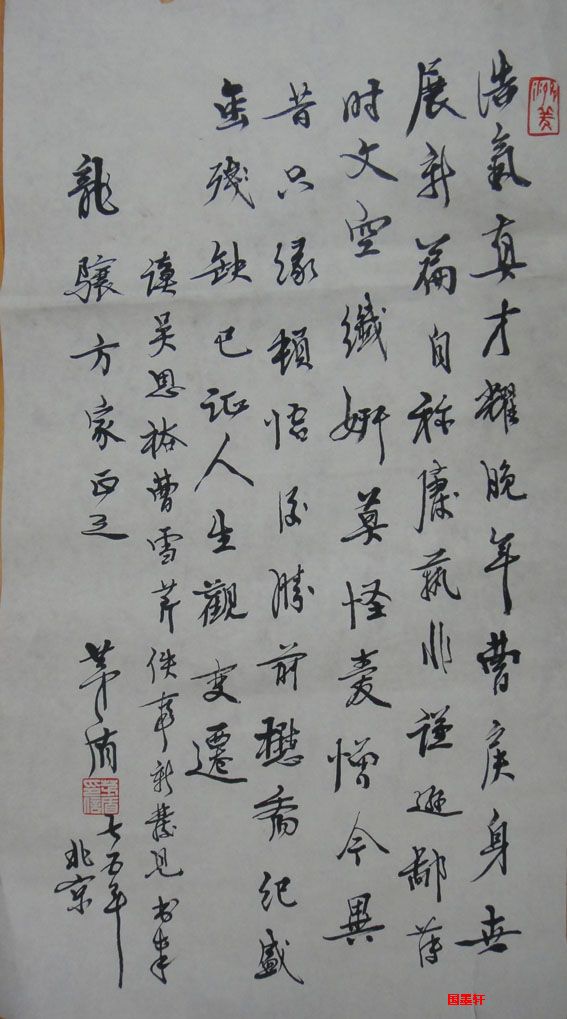 浩氣真才耀晚年曹侯身世
展新篇自称廢藝非謹遜鄙薄
时文空纖妍莫怪愛憎今異
昔只缘頓悟後勝前懋齋紀盛
虽殘缺已証人生觀变遷
读吴恩裕曹雪芹佚著新發見书奉
龍驤方家正之
茅盾
七五年
北京
国墨轩